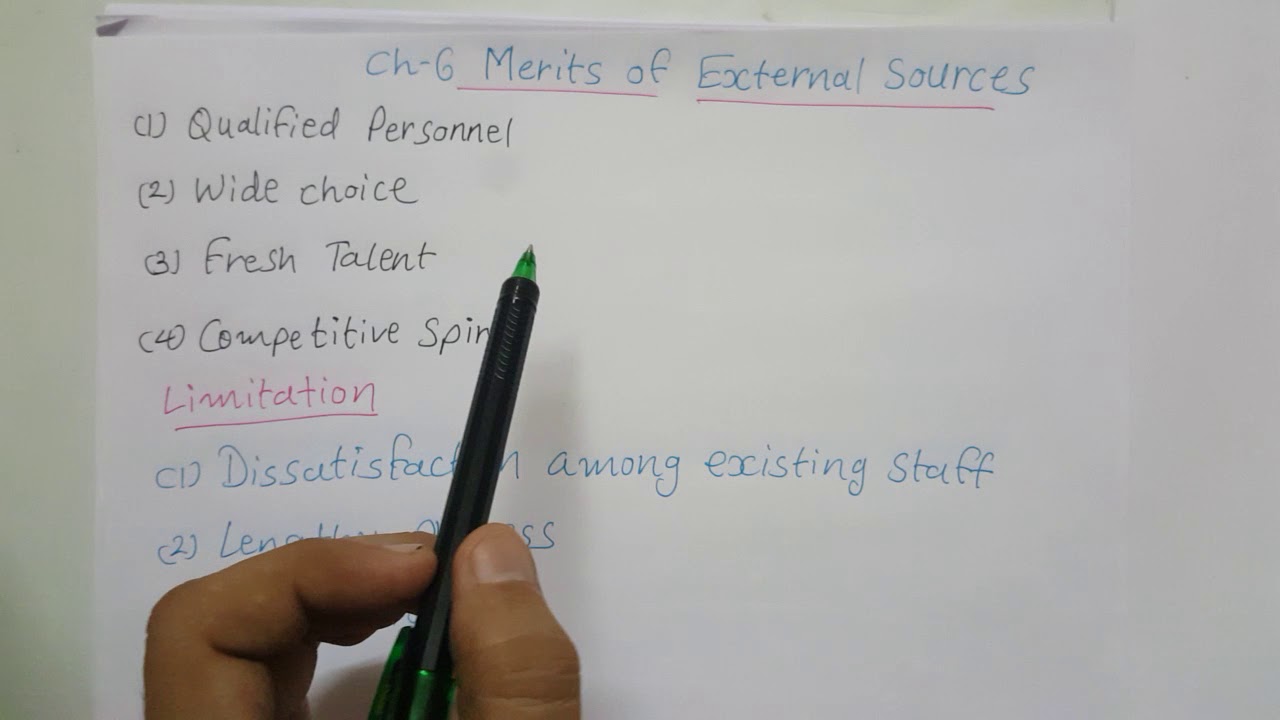 Ch-6 Merits of External Sources
(1) Qualified Personnel
(2) Wide choice
(3) Fresh Talent
(4) Competitive
Limitation
(1) among existing staff
(2)